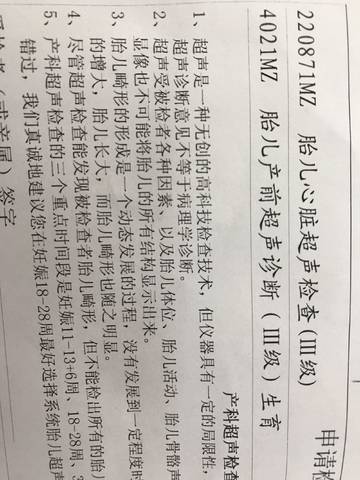 申请检
220871MZ 胎儿心脏超声检查(Ⅲ级)
4021MZ 胎儿产前超声诊断(Ⅲ级)生育
产科超声检查
1、超声是一种无创的高科技检查技术，但仪器具有一定的局限性，
超声诊断意见不等于病理学诊断。
2、超声受被检者各种因素、以及胎儿体位、胎儿活动、胎儿骨骼声
显像也不可能将胎儿的所有结构显示出来。
3、胎儿畸形的形成是一个动态发展的过程，没有发展到一定程度时
的增大，胎儿长大，而胎儿畸形也随之明显。
4、尽管超声检查能发现被检查者胎儿畸形，但不能检出所有的胎儿
5、产科超声检查的三个重点时间段是妊娠11-13+6周、18-28周、3
错过，我们真诚地建议您在妊娠18-28周最好选择系统胎儿超声
(或亲属)签字